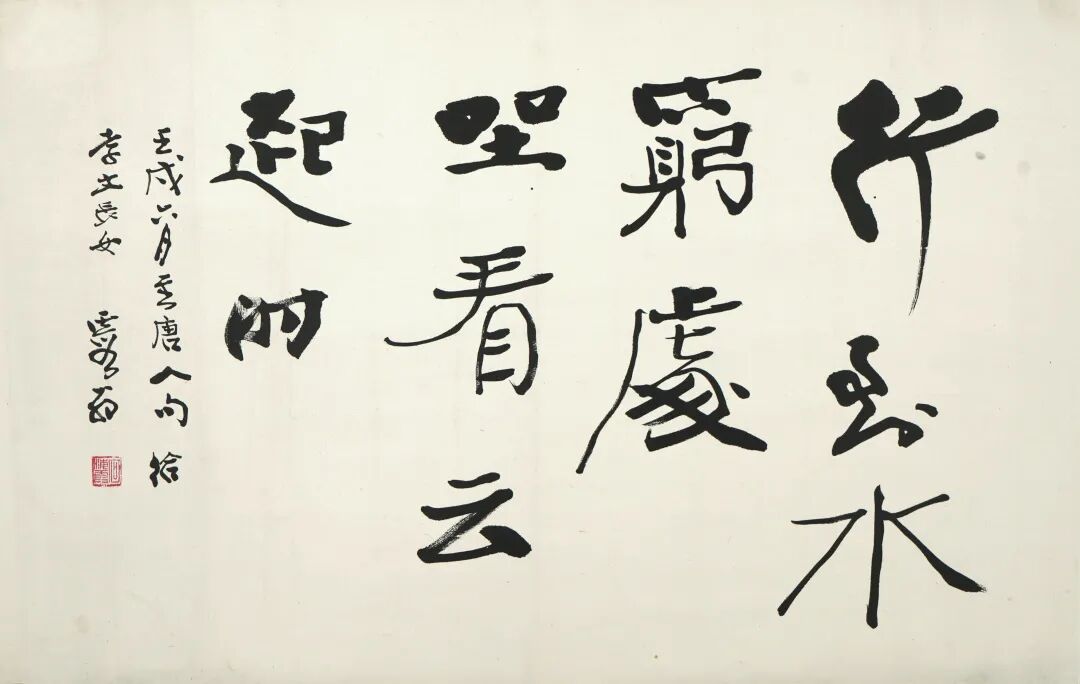 行到水
窮處
坐看云
起时
壬戌六月書唐人句 給
孝文長女